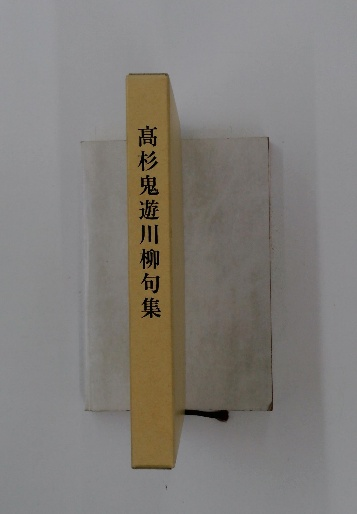 髙杉鬼遊川柳句集